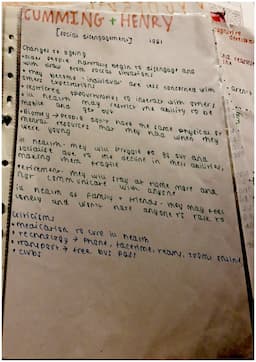 CUMMING + HENRY
[social disengagement] 1961
Changes to ageing
• older people naturally begin to disengage and
with draw from social situations
• they become 'individual' are less concerned with
others expectations
• restricted opportunities to interact with others
ill health may restrict the ability to be
mobile and
• biology → people don't have the same physical or
mental resources that they had when they
were young
ill health - they will struggle to go out and
socialise due to the decline in their abilities,
making them fragile
retirement - they will stay at home more and
not communicate with anyone
ill health of family + friends - they may feel
lonely and won't have anyone to talk to
Criticisms
• medication to cure ill health
• technology → phone, facetime, teams, zoom, online
• transport → free bus pass
• clubs